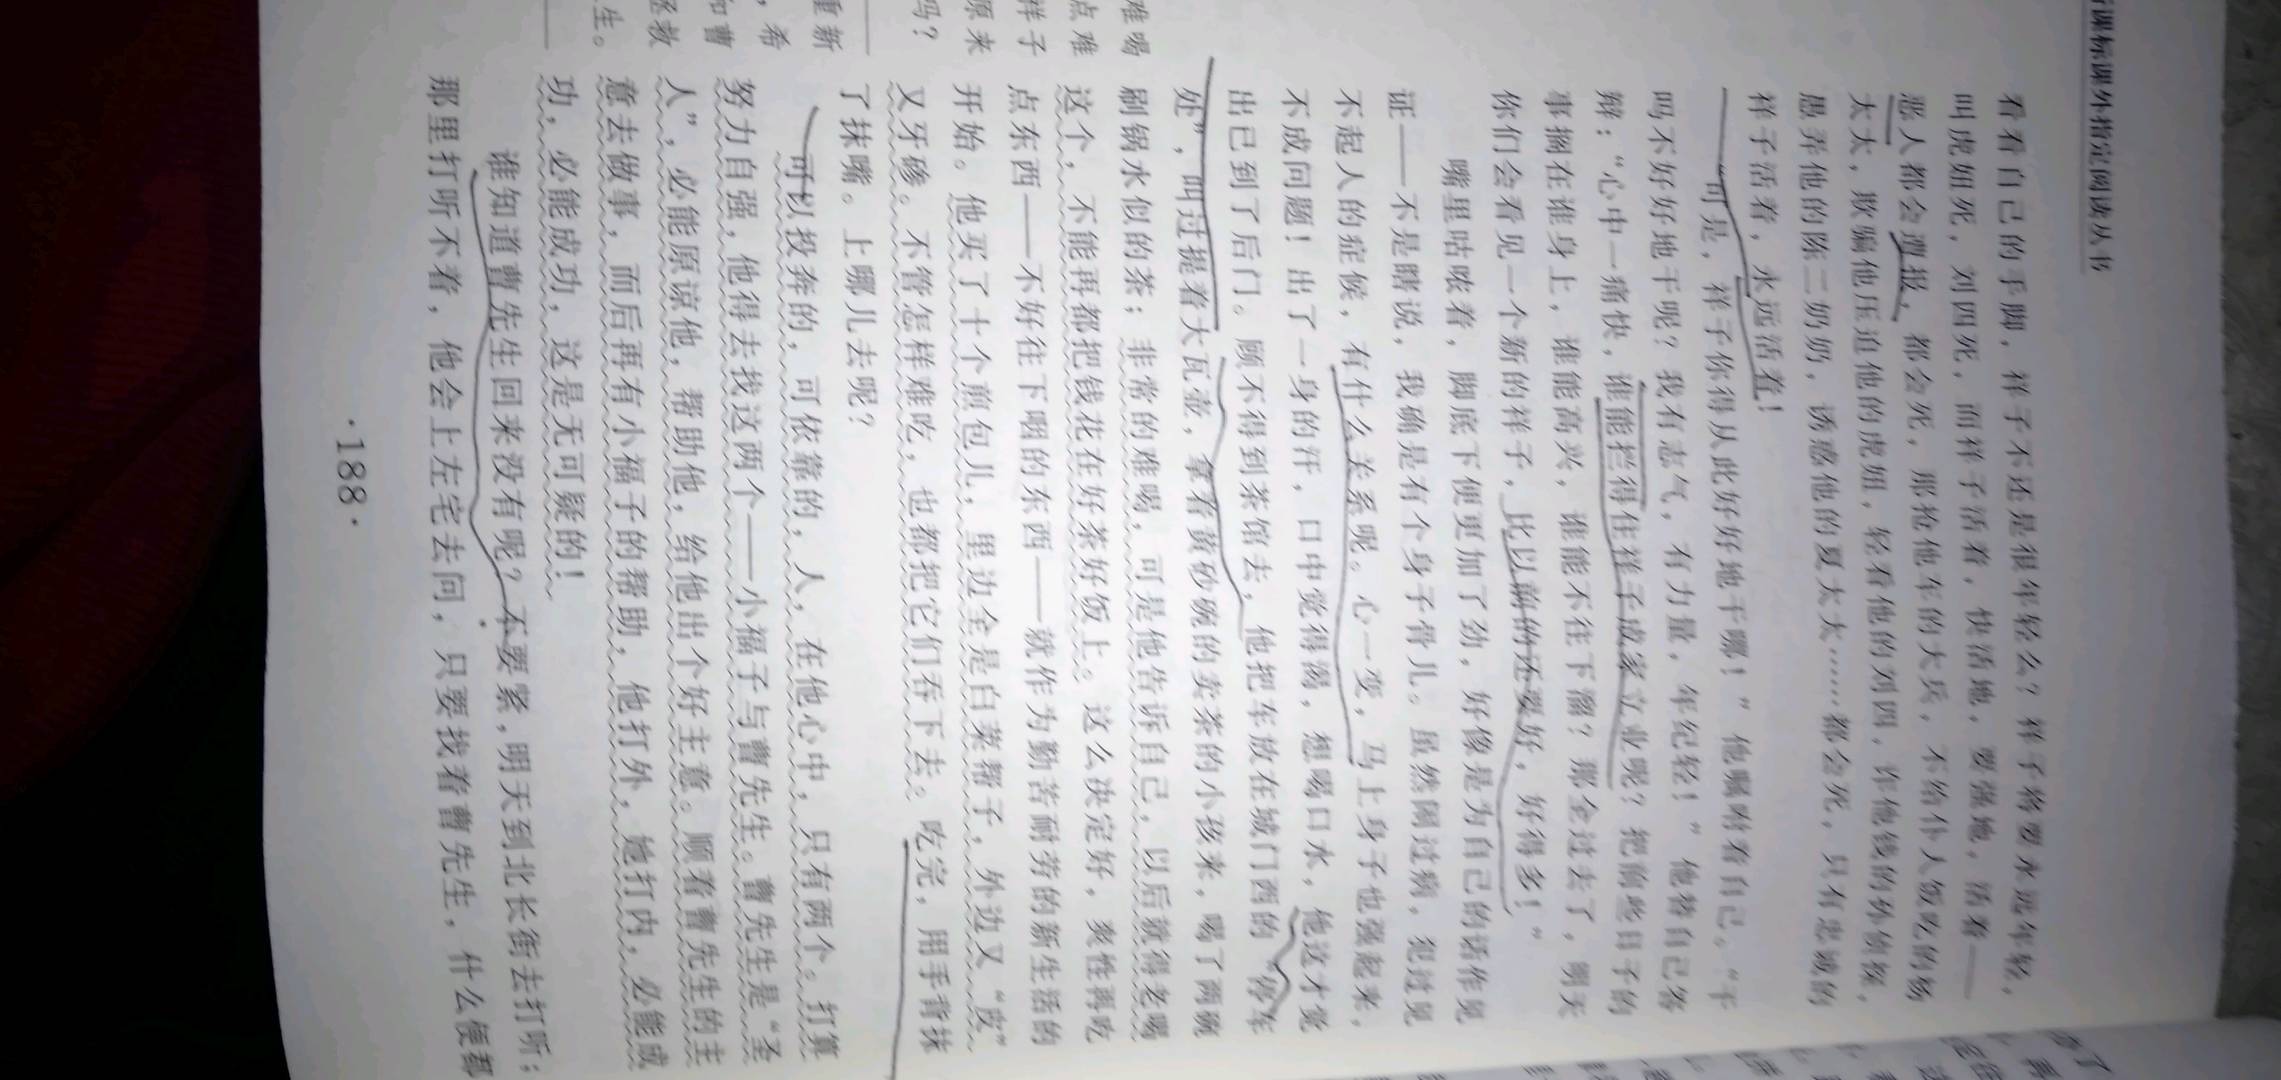 新课标课外指定阅读丛书
看看自己的手脚，祥子不还是很年轻么？祥子将要永远年轻，
叫虎妞死，刘四死，而祥子活着，快活地，要强地，活着——
恶人都会遭报，都会死，那抢他车的大兵，不给仆人饭吃的杨
太太，欺骗他压迫他的虎妞，轻看他的刘四，诈他钱的孙侦探，
愚弄他的陈二奶奶，诱惑他的夏太太……都会死，只有忠诚的
祥子活着，永远活着！
可是，祥子你得从此好好地干哪！”他嘱咐着自己。“干
吗不好好地干呢？我有志气，有力量，年纪轻！”他替自己答
辩：“心中一痛快，谁能拦得住祥子成家立业呢？把前些日子的
事搁在谁身上，谁能高兴，谁能不往下溜？那全过去了，明天
你们会看见一个新的祥子，比以前的还要好，好得多！”
嘴里咕哝着，脚底下便更加了劲，好像是为自己的话作见
证——不是瞎说，我确是有个身子骨儿。虽然闹过病，犯过见
不起人的症候，有什么关系呢。心一变，马上身子也强起来，
不成问题！出了一身的汗，口中觉得渴，想喝口水，他这才觉
出已到了后门。顾不得到茶馆去，他把车放在城门西的“停车
处”，叫过提着大瓦壶，拿着黄砂碗的卖茶的小孩来，喝了两碗
刷锅水似的茶；非常的难喝，可是他告诉自己，以后就得老喝
这个，不能再都把钱花在好茶好饭上。这么决定好，爽性再吃
点东西——不好往下咽的东西——就作为勤苦耐劳的新生活的
开始。他买了十个煎包儿，里边全是白菜帮子，外边又“皮”
又牙碜。不管怎样难吃，也都把它们吞下去。吃完，用手背抹
了抹嘴。上哪儿去呢？
可以投奔的，可依靠的，人，在他心中，只有两个。打算
努力自强，他得去找这两个——小福子与曹先生。曹先生是“圣
人”，必能原谅他，帮助他，给他出个好主意。顺着曹先生的主
意去做事，而后再有小福子的帮助，他打外，她打内，必能成
功，必能成功，这是无可疑的！
谁知道曹先生回来没有呢？不要紧，明天到北长街去打听；
那里打听不着，他会上左宅去问，只要找着曹先生，什么便都
·188·
难喝
点难
样子
原来
吗？
重新
，希
和曹
拯救
生。